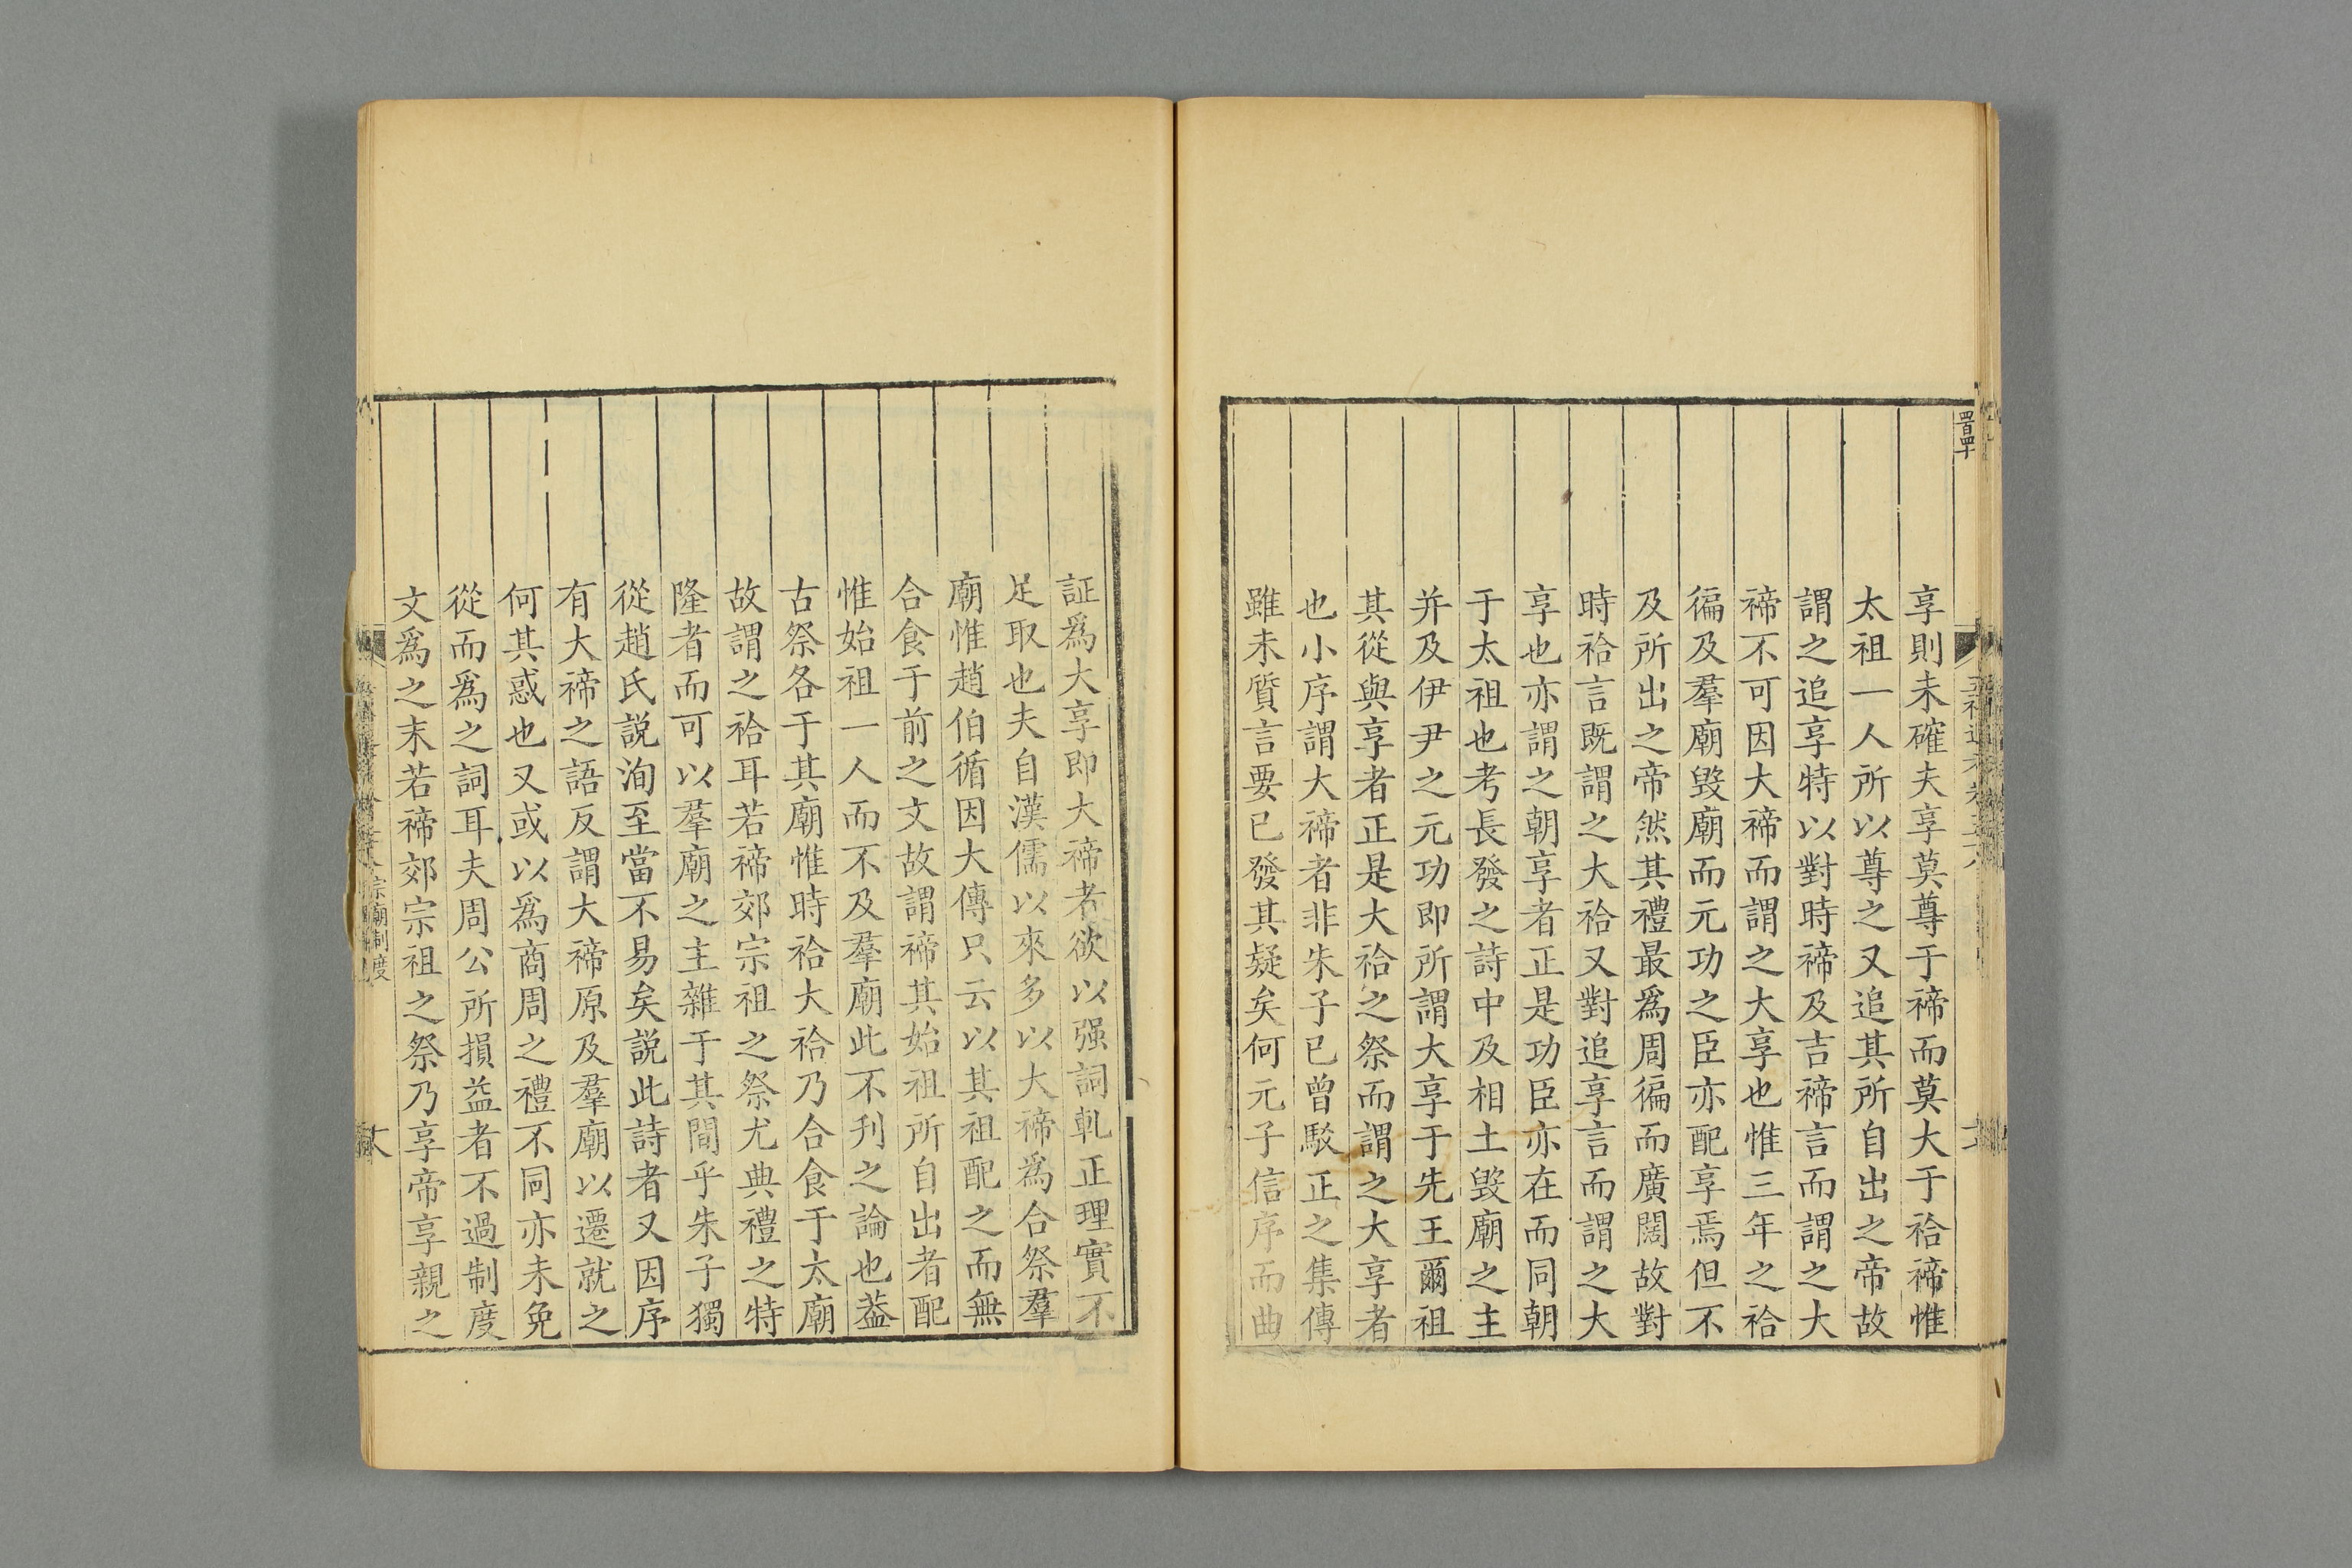 享則未確夫享莫尊于禘而莫大于祫禘惟
太祖一人所以尊之又追其所自出之帝故
謂之追享特以對時禘及吉禘言而謂之大
禘不可因大禘而謂之大享也惟三年之祫
徧及羣廟毀廟而元功之臣亦配享焉但不
及所出之帝然其禮最爲周徧而廣闊故對
時祫言既謂之大祫又對追享言而謂之大
享也亦謂之朝享者正是功臣亦在而同朝
于太祖也考長發之詩中及相土毀廟之主
并及伊尹之元功即所謂大享于先王爾祖
其從與享者正是大祫之祭而謂之大享者
也小序謂大禘者非朱子已曾駁正之集傳
雖未質言要已發其疑矣何元子信序而曲
証爲大享即大禘者欲以强詞軋正理實不
足取也夫自漢儒以來多以大禘爲合祭羣
廟惟趙伯循因大傳只云以其祖配之而無
合食于前之文故謂禘其始祖所自出者配
惟始祖一人而不及羣廟此不刋之論也葢
古祭各于其廟惟時祫大祫乃合食于太廟
故謂之祫耳若禘郊宗祖之祭尤典禮之特
隆者而可以羣廟之主雜于其間乎朱子獨
從趙氏説洵至當不易矣説此詩者又因序
有大禘之語反謂大禘原及羣廟以遷就之
何其惑也又或以爲商周之禮不同亦未免
從而爲之詞耳夫周公所損益者不過制度
文爲之末若禘郊宗祖之祭乃享帝享親之
宗廟制度